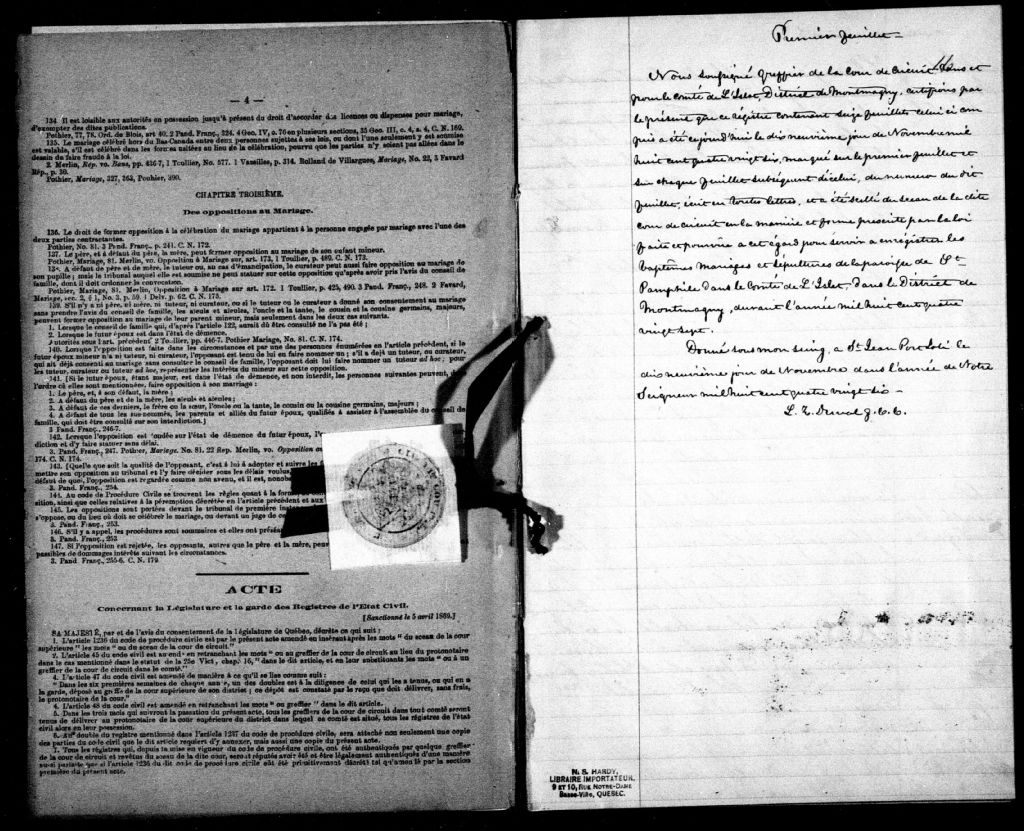 — 4 —
134 Il est loisible aux autorités en possession jusqu'à présent du droit d'accorder des licences ou dispenses pour mariage,
d'exempter des dites publications.
Pothier, 77, 78. Ord. de Blois, art 40. 2 Pand. Franç., 324. 4 Geo. IV, c. 76 en plusieurs sections, 35 Geo. III, c. 4, s. 4, C. N. 169.
135. Le mariage célébré hors du Bas-Canada entre deux personnes sujettes à ses lois, ou dont l'une seulement y est soumise
est valable, s'il est célébré dans les formes usitées au lieu de la célébration, pourvu que les parties n'y soient pas allées dans le
dessin de faire fraude à la loi.
2. Merlin, Rép. vo. Bans, pp. 436-7, 1 Toullier, No. 577. 1 Vazeilles, p. 314. Rolland de Villargues, Mariage, No. 22, 3 Favard
Rép., p. 30.
Pothier, Mariage, 327, 363, Pouhier, 390.
CHAPITRE TROISIÈME.
Des oppositions au Mariage.
136. Le droit de former opposition à la célébration du mariage appartient à la personne engagée par mariage avec l'une des
deux parties contractantes.
Pothier, No. 81. 3 Pand. Franç., p. 241. C. N. 172.
137. Le père, et à défaut du père, la mère, peut former opposition au mariage de son enfant mineur.
Pothier, Mariage, 81. Merlin, vo. Opposition à Mariage sur, art. 173, 1 Toullier, p. 489. C. N. 173.
138. A défaut de père et de mère, le tuteur ou, au cas d'émancipation, le curateur peut aussi faire opposition au mariage de
son pupille; mais le tribunal auquel elle est soumise ne peut statuer sur cette opposition qu'après avoir pris l'avis du conseil de
famille, dont il doit ordonner la convocation.
Pothier, Mariage, 81. Merlin, Opposition à Mariage sur art. 172. 1 Toullier, p. 425, 490. 3 Pand. Franç., 248. 2 Favard,
Mariage, sec. 2, § 1, No. 3, p. 59. 1 Delv. p. 62. C. N. 175.
139. S'il n'y a ni père, ni mère, ni tuteur, ni curateur, ou si le tuteur ou le curateur a donné son consentement au mariage
sans prendre l'avis du conseil de famille, les aïeuls et aïeules, l'oncle et la tante, le cousin et la cousine germains, majeurs,
peuvent former opposition au mariage de leur parent mineur, mais seulement dans les deux cas suivants.
1. Lorsque le conseil de famille qui, d'après l'article 122, aurait dû être consulté ne l'a pas été;
2. Lorsque le futur époux est dans l'état de démence.
Autorités sous l'art. précédent 2 Toullier, pp. 446-7. Pothier Mariage, No. 81. C. N. 174.
140. Lorsque l'opposition est faite dans les circonstances et par une des personnes énumérées en l'article précédent, si le
futur époux mineur n'a ni tuteur, ni curateur, l'opposant est tenu de lui en faire nommer un; s'il a déjà un tuteur, ou curateur,
qui ait déjà consenti au mariage sans consulter le conseil de famille, l'opposant doit lui faire nommer un tuteur ad hoc; pour
les tuteur, curateur ou tuteur ad hoc, représenter les intérêts du mineur sur cette opposition.
141. [Si le futur époux, étant majeur, est dans l'état de démence, et non interdit, les personnes suivantes peuvent,
l'ordre où elles sont mentionnées, faire opposition à son mariage:
1. Le père, et, à son défaut, la mère;
2. A défaut du père et de la mère, les aïeuls et aïeules;
3. A défaut de ces derniers, le frère ou la sœur, l'oncle ou la tante, le cousin ou la cousine germains, majeurs;
4. A défaut de tous les sus-nommés, les parents et alliés du futur époux, qualifiés à assister à l'assemblée du conseil de
famille, qui doit être consulté sur son interdiction.]
3 Pand. Franç., 246-7.
142. Lorsque l'opposition est fondée sur l'état de démence du futur époux, l'
diction et d'y faire statuer sans délai.
3. Pand. Franç., 247. Pothier, Mariage. No. 81. 22 Rép. Merlin, vo. Opposition
174. C. N. 174.
143. [Quelle que soit la qualité de l'opposant, c'est à lui à adopter et suivre les
mettre son opposition au tribunal et l'y faire décider sous les délais voulus,
défaut de quoi, l'opposition est regardée comme non avenu, et il est, nonobs
3 Pand. Franç., 254.
144. Au code de Procédure Civile se trouvent les règles quant à la forme,
sition, ainsi que celles relatives à la péremption décrétée en l'article précédent et aux
145. Les oppositions sont portées devant le tribunal de première
s'oppose, ou du lieu où doit se célébrer le mariage, ou devant un juge de ce
3. Pand. Franç., 253.
146. S'il y a appel, les procédures sont sommaires et elles ont
3. Pand. Franç., 253
147. Si l'opposition est rejetée, les opposants, autres que le père et la mère,
passibles de dommages intérêts suivant les circonstances.
3. Pand. Franç., 255-6. C. N. 179.
ACTE
Concernant la Législature et la garde des Registres de l'Etat Civil.
[Sanctionné le 5 avril 1869.]
SA MAJESTÉ, par et de l'avis du consentement de la législature de Québec, décrète ce qui suit;
1. L'article 1236 du code de procédure civile est par le présent acte amendé en insérant après les mots " du sceau de la cour
supérieure " les mots " ou du sceau de la cour de circuit."
2. L'article 45 du code civil est amendé en retranchant les mots " ou au greffier de la cour de circuit au lieu du protonotaire
dans le cas mentionné dans le statut de la 25e Vict, chap. 16, " dans le dit article, et en leur substituant les mots " ou à un
greffier de la cour de circuit dans le comté."
4. L'article 47 du code civil est amendé de manière à ce qu'il se lise comme suit:
" Dans les six premières semaines de chaque année, un des doubles est à la diligence de celui qui les a tenus, ou qui en a
la garde, déposé au greffe de la cour supérieure de son district; ce dépôt est constaté par le reçu que doit délivrer, sans frais,
le protonotaire de la cour."
4. L'article 48 du code civil est amendé en retranchant les mots " ou greffier " dans le dit article.
5. Dans les trois mois qui suivront la passation du présent acte, tous les greffiers de la cour de circuit dans tout comté seront
tenus de délivrer au protonotaire de la cour supérieure du district dans lequel ce comté est situé, tous les régistres de l'état
civil alors en leur possession.
6. Au double du registre mentionné dans l'article 1237 du code de procédure civile, sera attaché non seulement une copie
des parties du code civil que le dit article requiert d'y annexer, mais aussi une copie du présent acte.
7. Tous les régistres qui, depuis la mise en vigueur du code de procédure civile, ont été authentiqués par quelque greffier
de la cour de circuit et revêtus du sceau de la dite cour, seront réputés avoir été et être légalement authentiqués d'une manière
aussi parfaite que si l'article 1236 du dit code de procédure civile eût été primitivement décrété tel qu'amendé par la section
première du présent acte.
Premier feuillet —
Nous soussigné greffier de la Cour de Circuit dans et
pour le Comté de L'Islet, District de Montmagny, certifions par
le présent que ce Régistre contenant seize feuillets celui ci com
pris a été cejourd'hui le dix neuvième jour de Novembre mil
huit cent quatre vingt six, marqué sur le premier feuillet et
sur chaque feuillet subséquent d'icelui, du numéro du dit
feuillet, écrit en toutes lettres, et a été scellé du sceau de la dite
cour de circuit en la manière et forme prescrite par la loi
faite et pourvue à cet égard pour servir à enregistrer les
baptêmes mariages et sépultures de la paroisse de St
Pamphile dans le Comté de L'Islet, dans le District de
Montmagny, durant l'année mil huit cent quatre
vingt sept.
Donné sous mon seing, à St Jean Port Joli le
dix neuvième jour de Novembre dans l'année de Notre
Seigneur mil huit cent quatre vingt six —
L. Z. Duval g. c. c.
N. S. HARDY,
LIBRAIRE IMPORTATEUR,
9 ET 10, RUE NOTRE-DAME
Basse-Ville, QUEBEC.